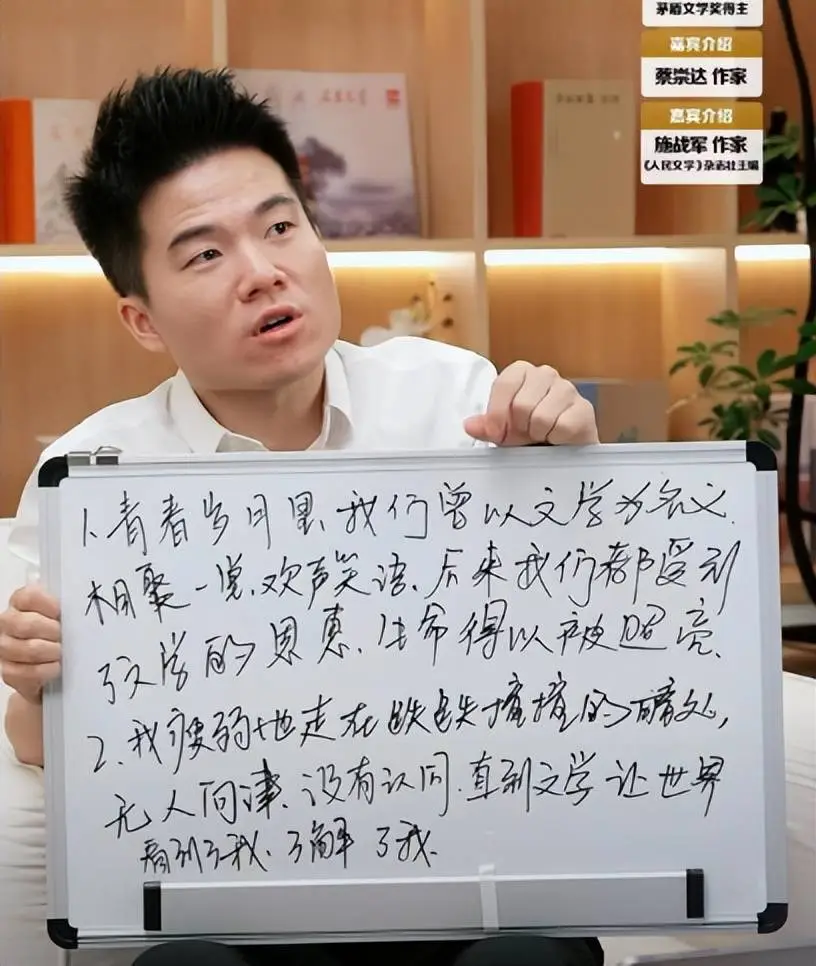 茅盾文学奖得主
嘉宾介绍
蔡崇达 作家
嘉宾介绍
施战军 作家
《人民文学》杂志社主编
1.青春岁月里、我们曾以文学为名义、
相聚一堂、欢声笑语、后来我们都受到
了文学的恩惠、生命得以被照亮、
2.我瘦弱地走在跌跌撞撞的暗处,
无人问津、没有认同、直到文学让世界
看到了我、了解了我.